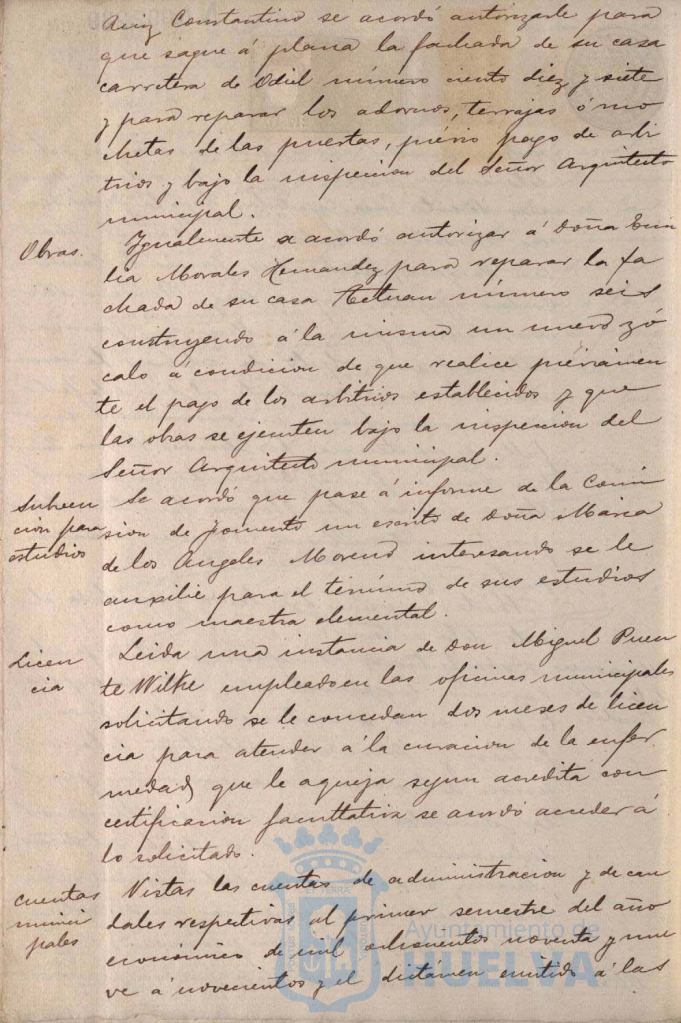 Ruiz Constantino se acordó autorizarle para
que saque á plana la fachada de su casa
carretera de Odiel número ciento diez y siete
y para reparar los adornos, terrajas ó mo
chetas de las puertas, prévio pago de arbi
trios y bajo la inspeccion del Señor Arquitecto
municipal.
Obras. Igualmente se acordó autorizar á Doña Emi
lia Morales Hernandez para reparar la fa
chada de su casa Tetuan número seis
construyendo á la misma un nuevo zó
calo á condicion de que realice préviamen
te el pago de los arbitrios establecidos y que
las obras se ejecuten bajo la inspeccion del
Señor Arquitecto municipal.
Subven
cion para
estudios
Se acordó que pase á informe de la Comi
sion de fomento un escrito de Doña Maria
de los Angeles Moreno interesando se le
auxilie para el término de sus estudios
como maestra elemental.
Licen
cia
Leida una instancia de Don Miguel Puen
te Wilke empleado en las oficinas municipales
solicitando se le concedan dos meses de licen
cia para atender á la curacion de la enfer
medad que le aqueja segun acredita con
certificacion facultativa se acordó acceder á
lo solicitado.
Cuentas
munici
pales
Vistas las cuentas de administracion y de cau
dales respectivas al primer semestre del año
económico de mil ochocientos noventa y nue
ve á novecientos y el dictámen emitido á las
Ayuntamiento de
HUELVA